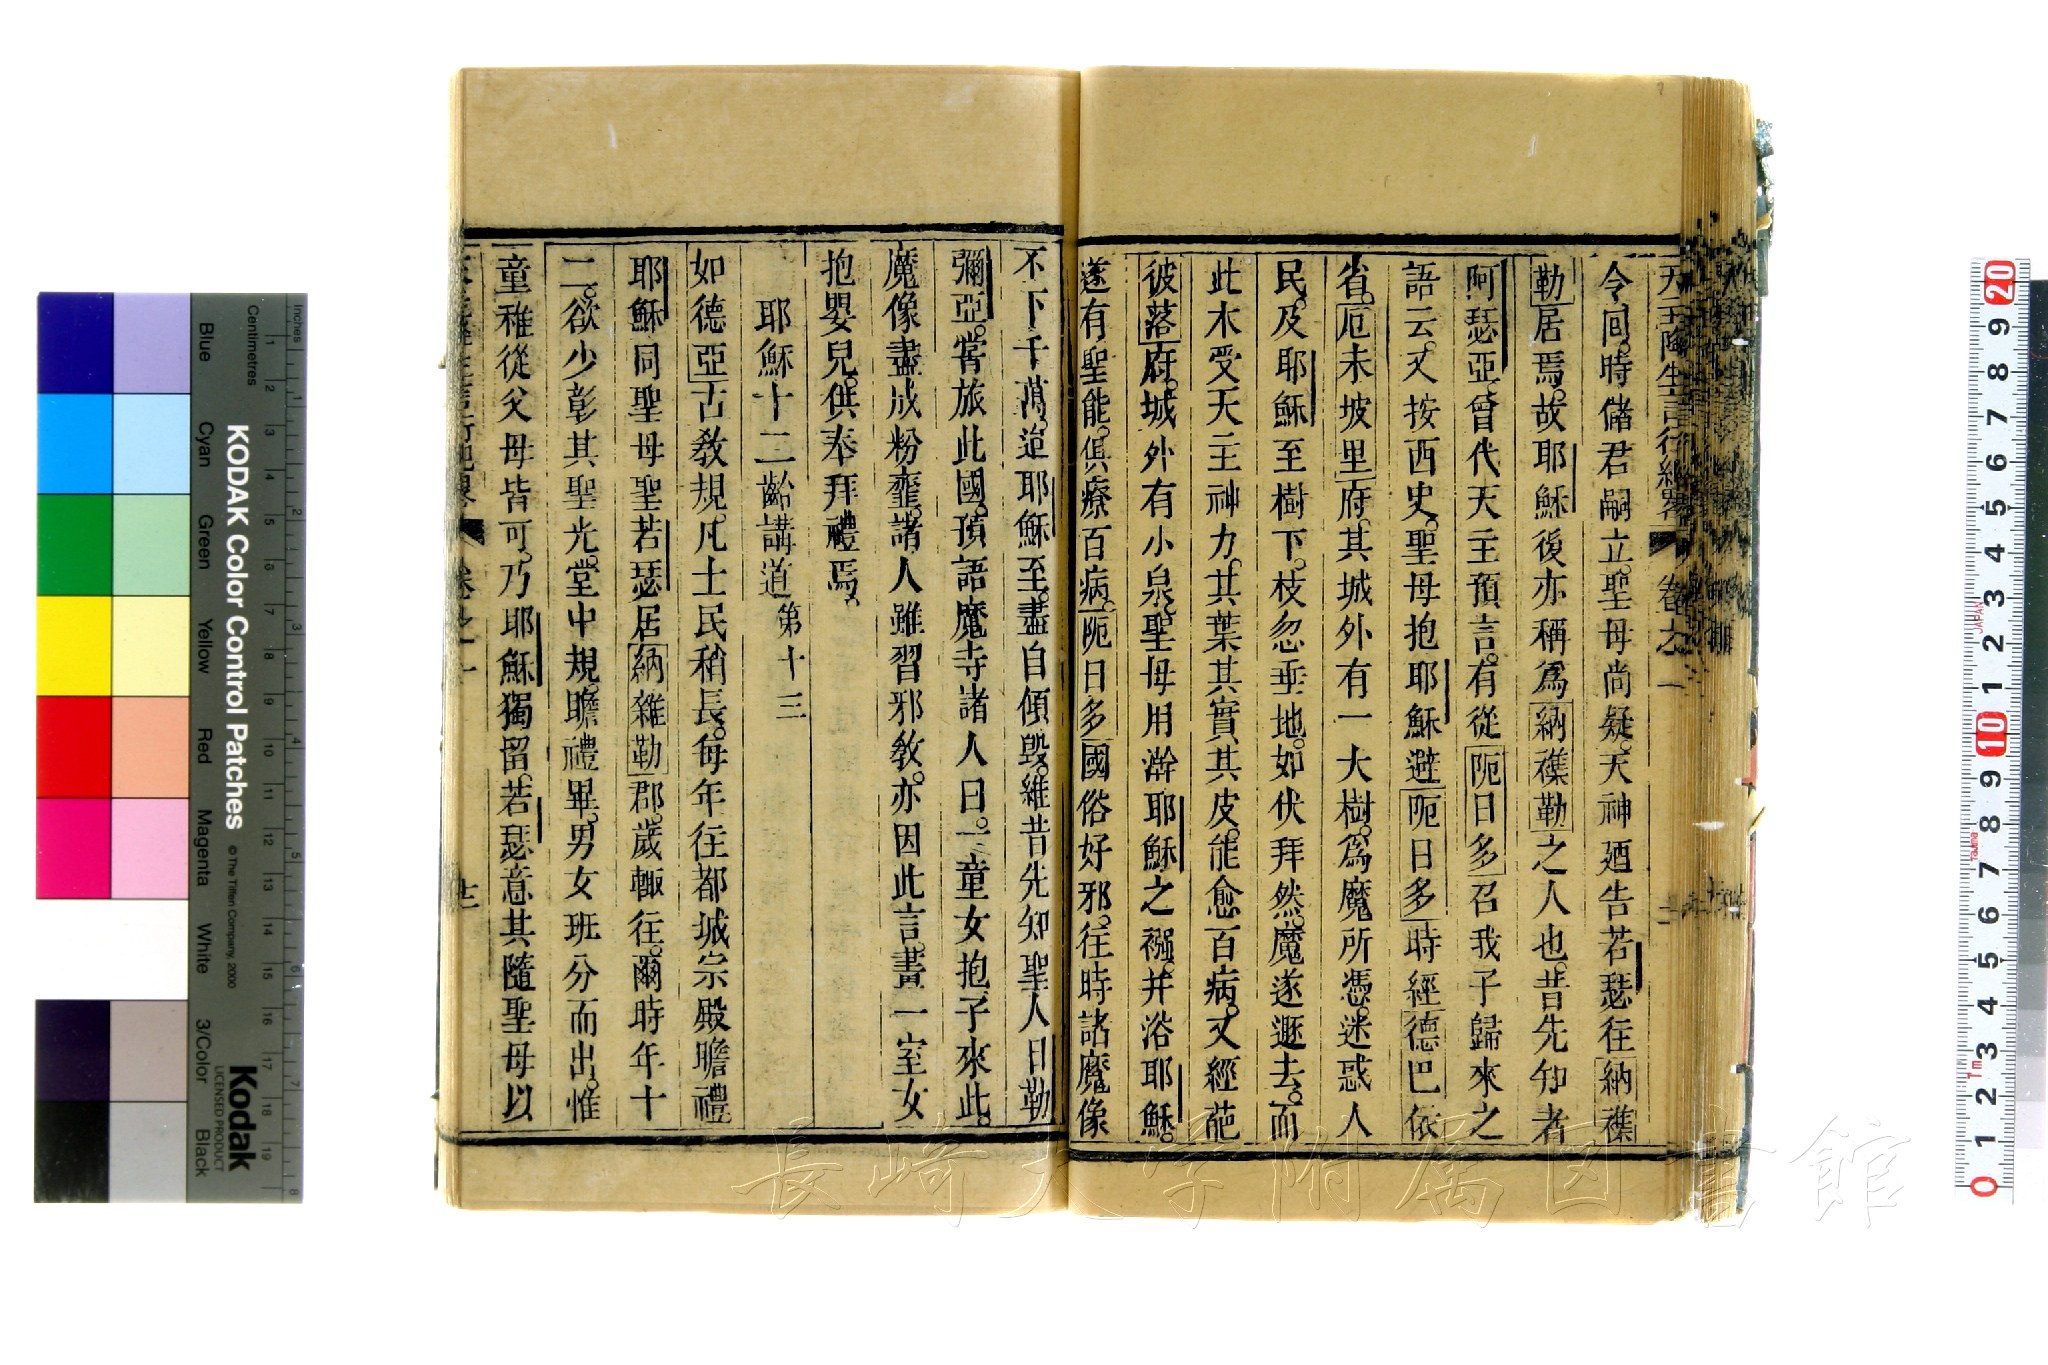 天主降生言行紀畧 卷之一
令回。時儲君嗣立。聖母尚疑。天神廼告若瑟往納襍
勒居焉。故耶穌後亦稱爲納襍勒之人也。昔先知者
阿瑟亞。曾代天主預言。有從阨日多召我子歸來之
語云。又按西史。聖母抱耶穌避阨日多時經德巴依
省。厄未坡里府。其城外有一大樹。爲魔所憑。迷惑人
民。及耶穌至樹下。枝忽垂地。如伏拜然。魔遂遯去。而
此木受天主神力。其葉其實其皮。能愈百病。又經葩
彼落府。城外有小泉。聖母用澣耶穌之襁。并浴耶穌。
遂有聖能。俱療百病。阨日多國俗好邪。往時諸魔像
不下千萬。迨耶穌至。盡自傾毀。維昔先知聖人日勒
彌亞。嘗旅此國。預語魔寺諸人曰。一童女抱子來此。
魔像盡成粉虀。諸人雖習邪敎。亦因此言。畫一室女
抱嬰兒。供奉拜禮焉。
耶穌十二齡講道 第十三
如德亞古敎規。凡士民稍長。每年往都城宗殿瞻禮
耶穌同聖母聖若瑟居納雜勒郡。歲輙往。爾時年十
二。欲少彰其聖光。堂中規。瞻禮畢。男女班分而出。惟
童稚從父母皆可。乃耶穌獨留。若瑟意其隨聖母以
卷之一
KODAK Color Control Patches
© The Tiffen Company, 2000
Kodak
LICENSED PRODUCT
Inches
Centimetres
Blue
Cyan
Green
Yellow
Red
Magenta
White
3/Color
Black
JAPAN
長崎大学附属図書館